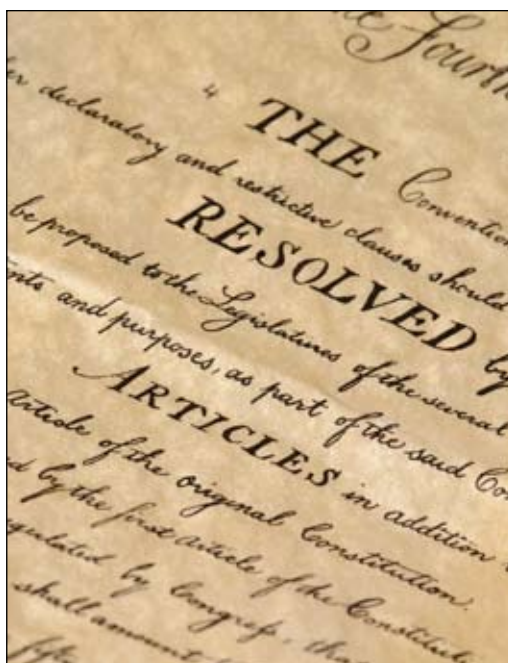 the Fourth
4 THE Convention
declaratory and restrictive clauses should
RESOLVED by
be proposed to the Legislatures of the several
and purposes, as part of the said
ARTICLES in addition
Article of the original Constitution.
by the first Article of the
regulated by Congreſs,
shall amount